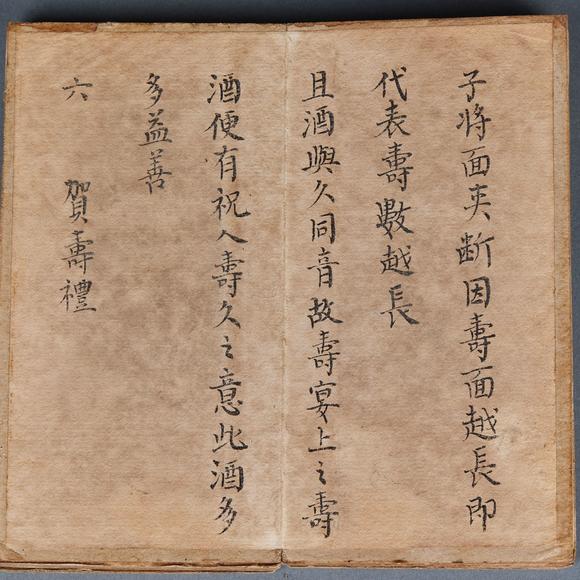 子将面夹断因壽面越長即
代表壽數越長
且酒與久同音故壽宴上之壽
酒便有祝人壽久之意此酒多
多益善
六 賀壽禮